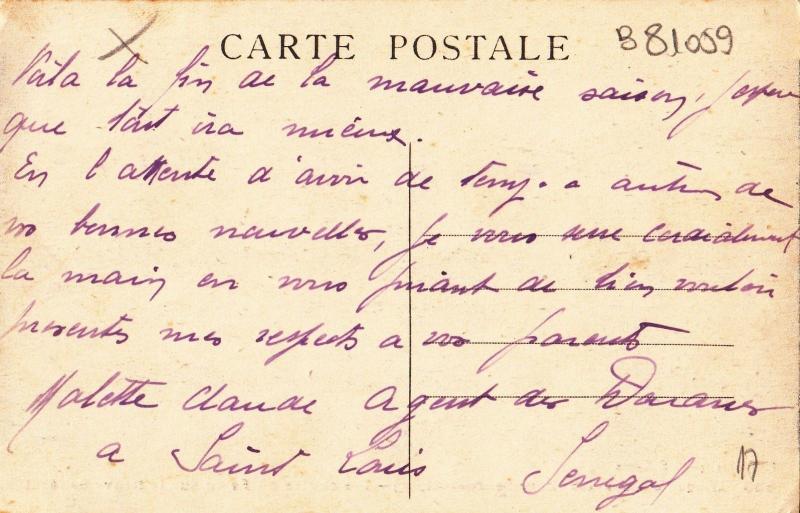 CARTE POSTALE
B 81059
Voila la fin de la mauvaise saison, j'espere
que tout ira mieux.
En l'attente d'avoir de temps a autres de
vos bonnes nouvelles, je vous serre cordialement
la main en vous priant de bien vouloir
presenter mes respects a vos parents
Malette Claude Agent des Douanes
a Saint Louis Senegal
17